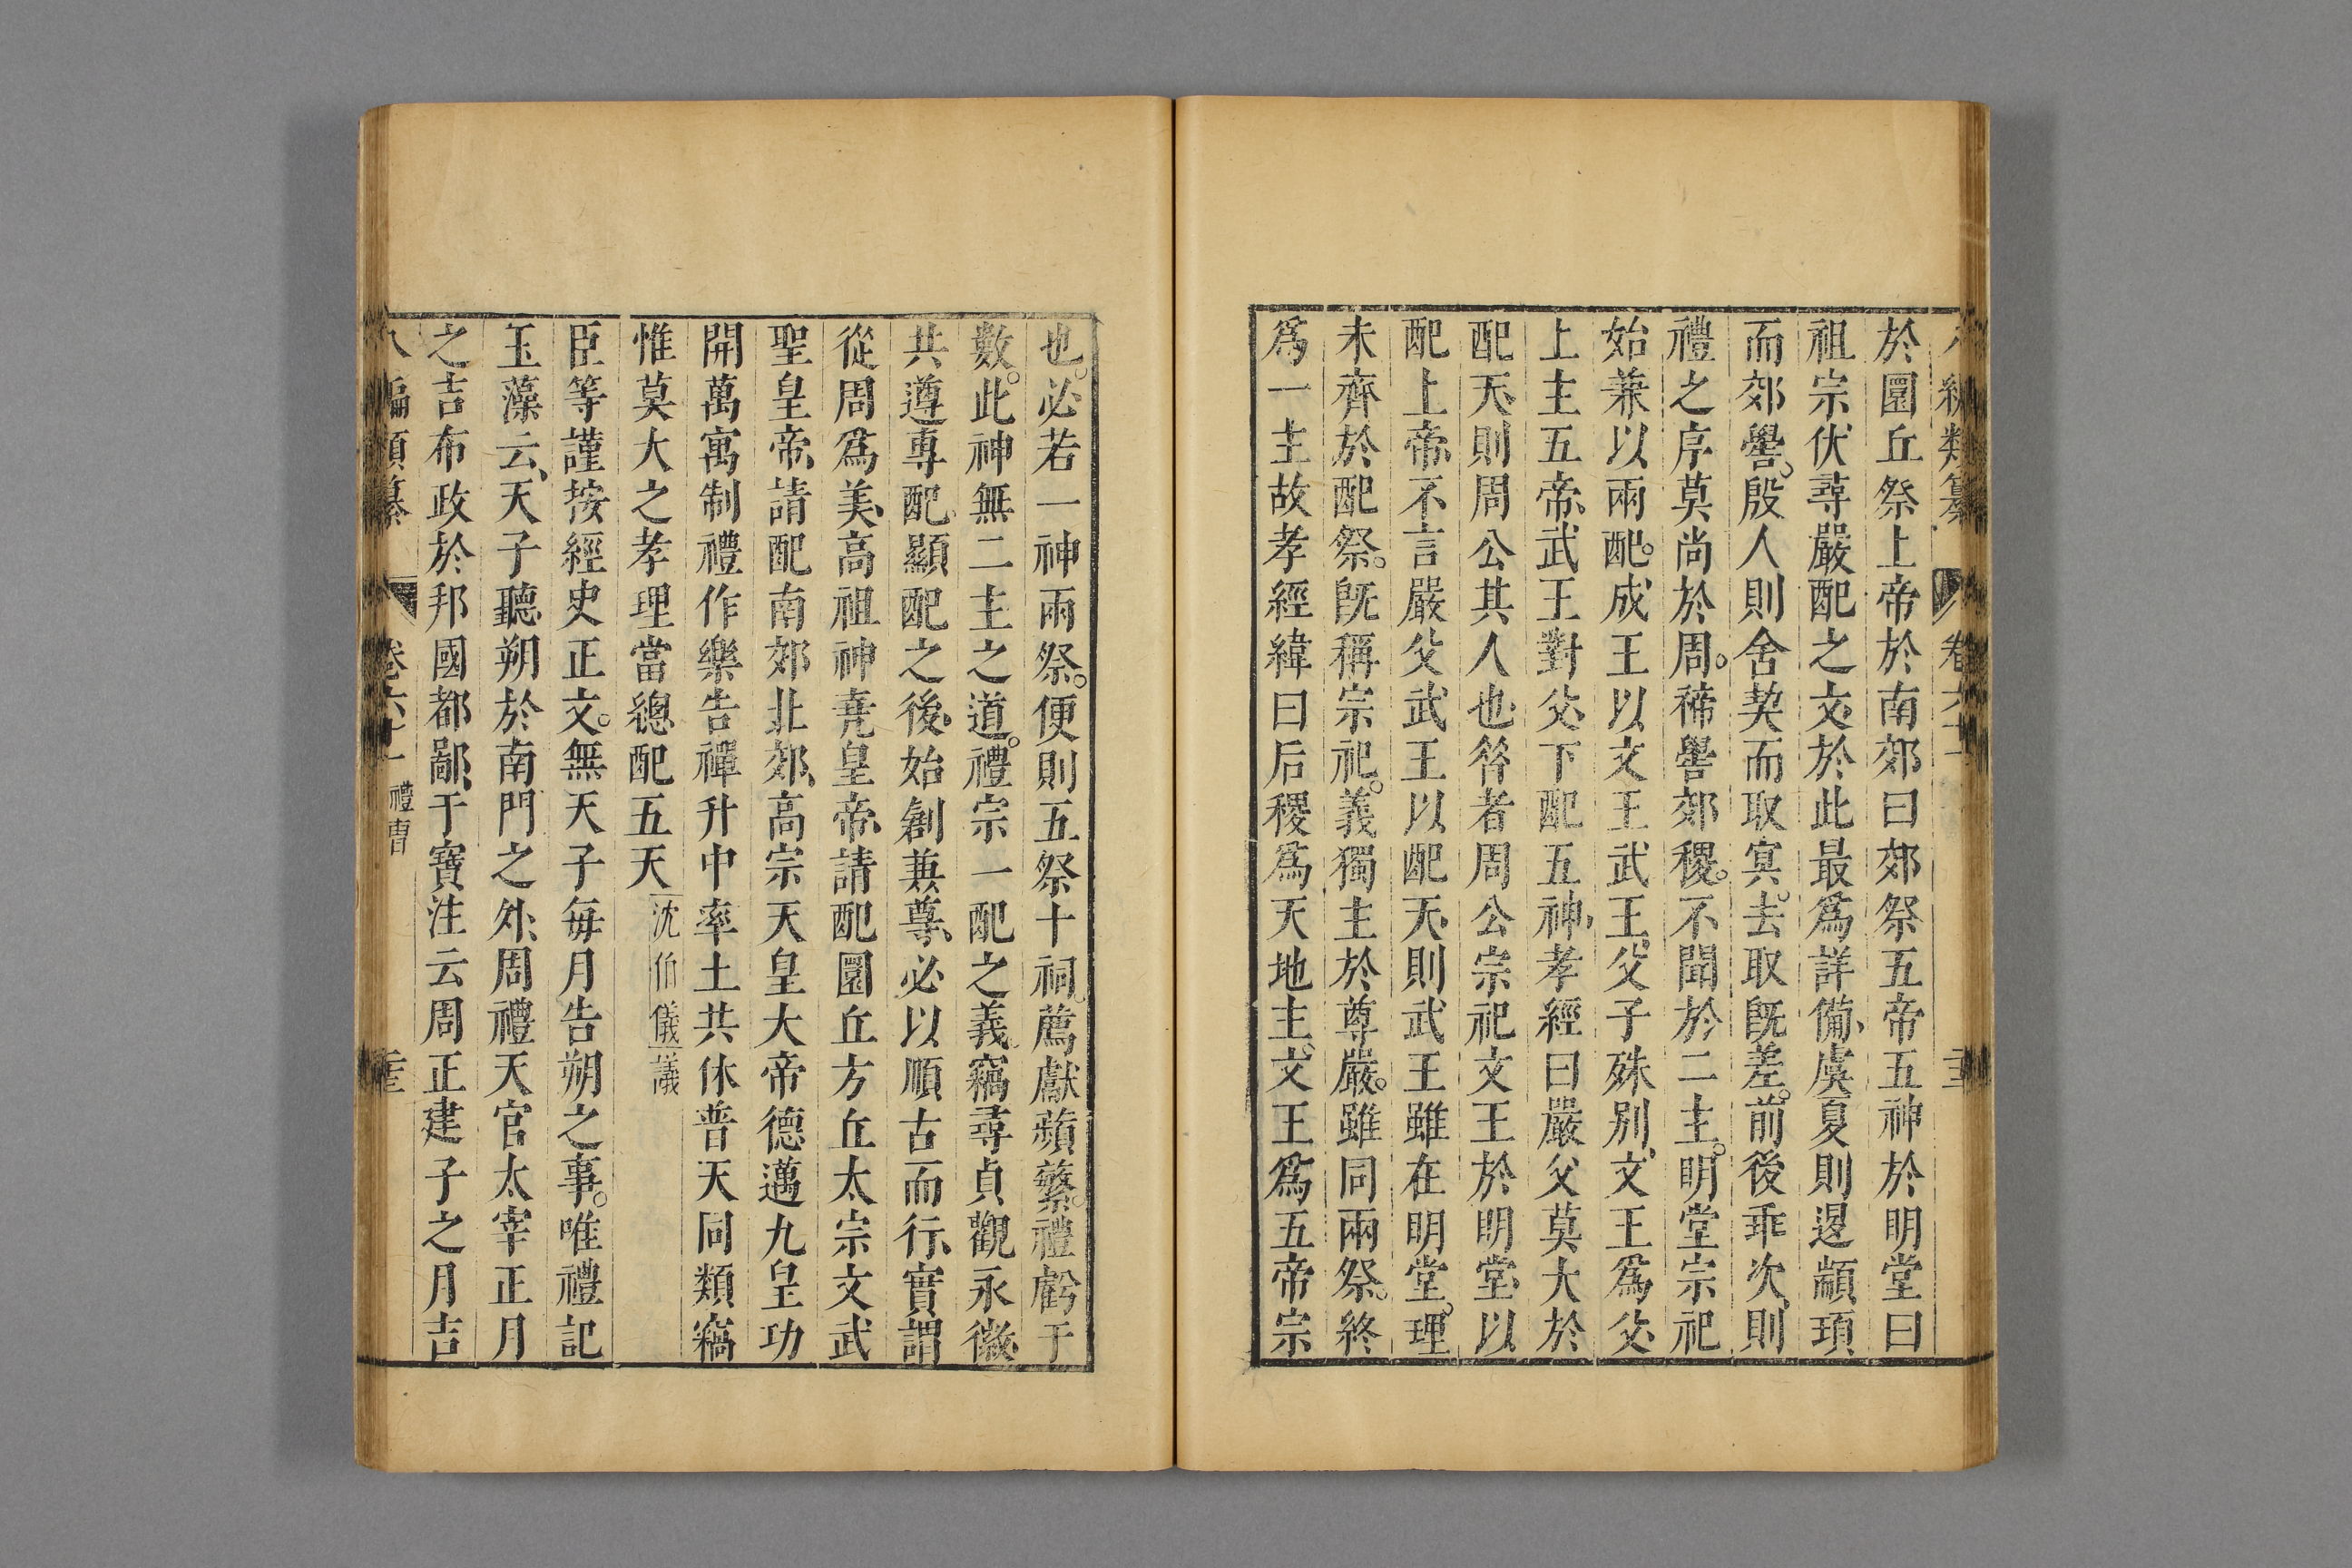 於圜丘祭上帝於南郊曰郊祭五帝五神於明堂曰
祖宗伏尋嚴配之文於此最爲詳備虞夏則退顓頊
而郊嚳殷人則舍契而取㝠去取旣差前後乖次則
禮之序莫尚於周禘嚳郊稷不聞於二主明堂宗祀
始兼以兩配成王以文王武王父子殊別文王爲父
上主五帝武王對父下配五神孝經曰嚴父莫大於
配天則周公其人也昝者周公宗祀文王於明堂以
配上帝不言嚴父武王以配天則武王雖在明堂理
未齊於配祭旣稱宗祀義獨主於尊嚴雖同兩祭終
爲一主故孝經緯曰后稷爲天地主文王爲五帝宗
也必若一神兩祭便則五祭十祠薦獻蘋蘩禮虧于
數此神無二主之道禮宗一配之義竊尋貞觀永徽
共遵專配顯配之後始創兼尊必以順古而行實謂
從周爲美高祖神尭皇帝請配圜丘方丘太宗文武
聖皇帝請配南郊北郊高宗天皇大帝德邁九皇功
開萬寓制禮作樂告禪升中率土共休普天同類竊
惟莫大之孝理當總配五天沈伯儀議
臣等謹按經史正文無天子每月告朔之事唯禮記
玉藻云天子聽朔於南門之外周禮天官太宰正月
之吉布政於邦國都鄙于寶注云周正建子之月吉
八編類纂 卷六十 禮曹